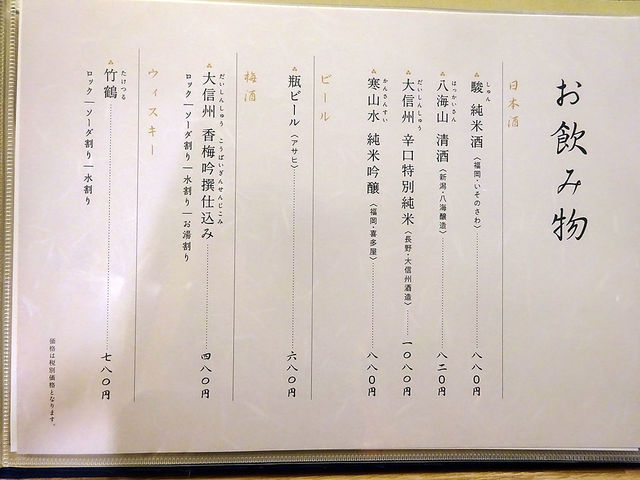 お飲み物
日本酒
駿 純米酒〈福岡・いそのさわ〉 八八〇円
しゅん
八海山 清酒〈新潟・八海醸造〉 八二〇円
はっかいさん
大信州 辛口特別純米〈長野・大信州酒造〉 一〇八〇円
だいしんしゅう
寒山水 純米吟醸〈福岡・喜多屋〉 八八〇円
かんさんすい
ビール
瓶ビール〈アサヒ〉 六八〇円
梅酒
大信州 香梅吟撰仕込み 四八〇円
だいしんしゅう こうばいぎんせんじこみ
ロック|ソーダ割り|水割り|お湯割り
ウィスキー
竹鶴 七八〇円
たけつる
ロック|ソーダ割り|水割り
価格は税別価格となります。